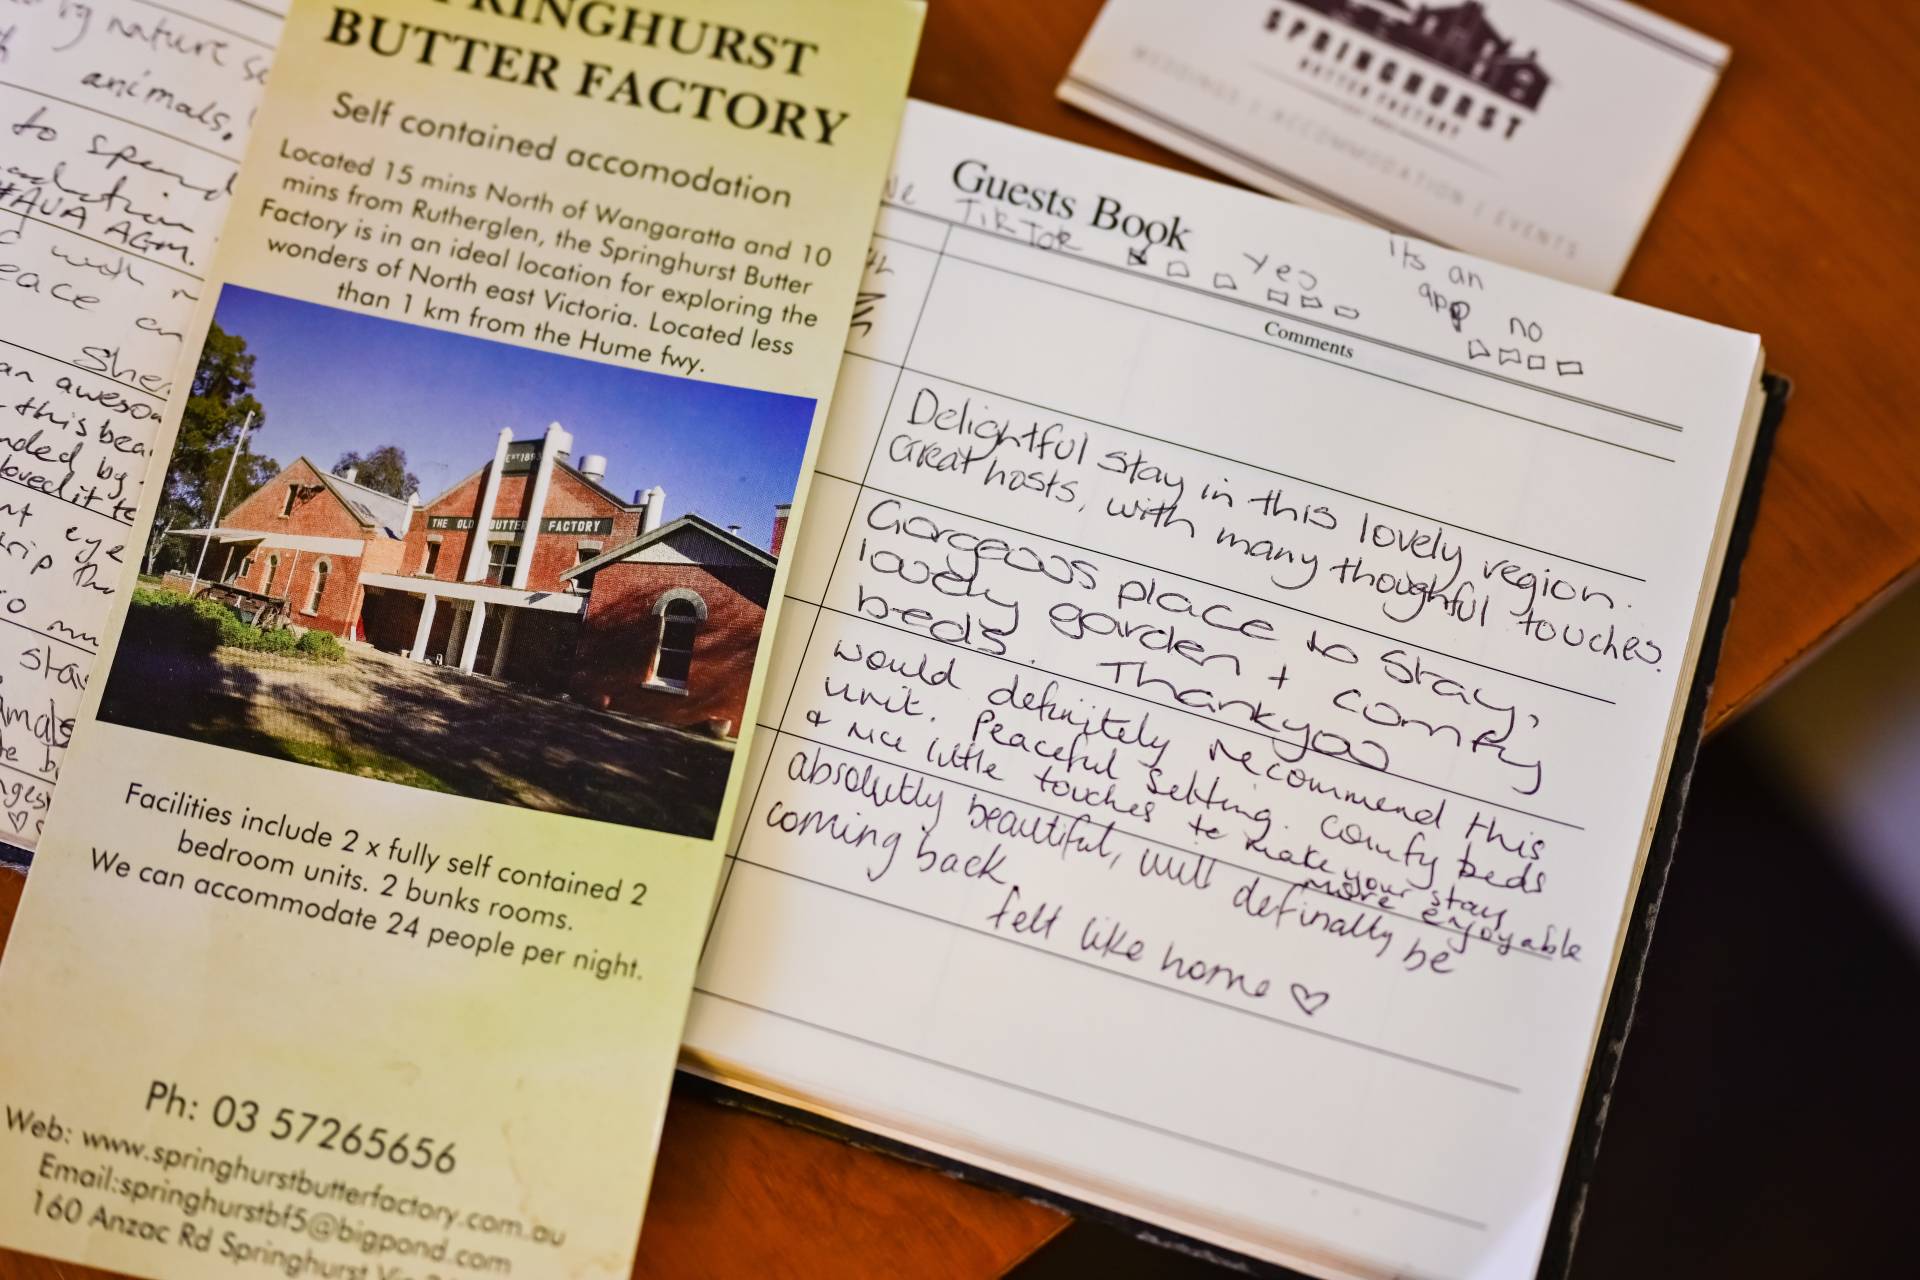 by nature
animals,
to spend
#AVA AGM.
with
eace
an aweso
this bea
nded by
loved it to
eye
trip
stay
BUTTER FACTORY
Self contained accomodation
Located 15 mins North of Wangaratta and 10
mins from Rutherglen, the Springhurst Butter
Factory is in an ideal location for exploring the
wonders of North east Victoria. Located less
than 1 km from the Hume fwy.
EST 1893
THE OLD BUTTER FACTORY
Facilities include 2 x fully self contained 2
bedroom units. 2 bunks rooms.
We can accommodate 24 people per night.
Ph: 03 57265656
Web: www.springhurstbutterfactory.com.au
Email:springhurstbf5@bigpond.com
160 Anzac Rd Springhurst Vic
SPRINGHURST
BUTTER FACTORY
WEDDINGS | ACCOMMODATION | EVENTS
Guests Book
TikTok
yes
its an
app no
Comments
Delightful stay in this lovely region.
Great hosts, with many thoughtful touches.
Gorgeous place to stay,
lovely garden + comfy
beds. Thankyou
would definitely recommend this
unit. Peaceful setting. comfy beds
& nice little touches to make your stay
more enjoyable
absolutly beautiful, will definally be
coming back.
felt like home ♡